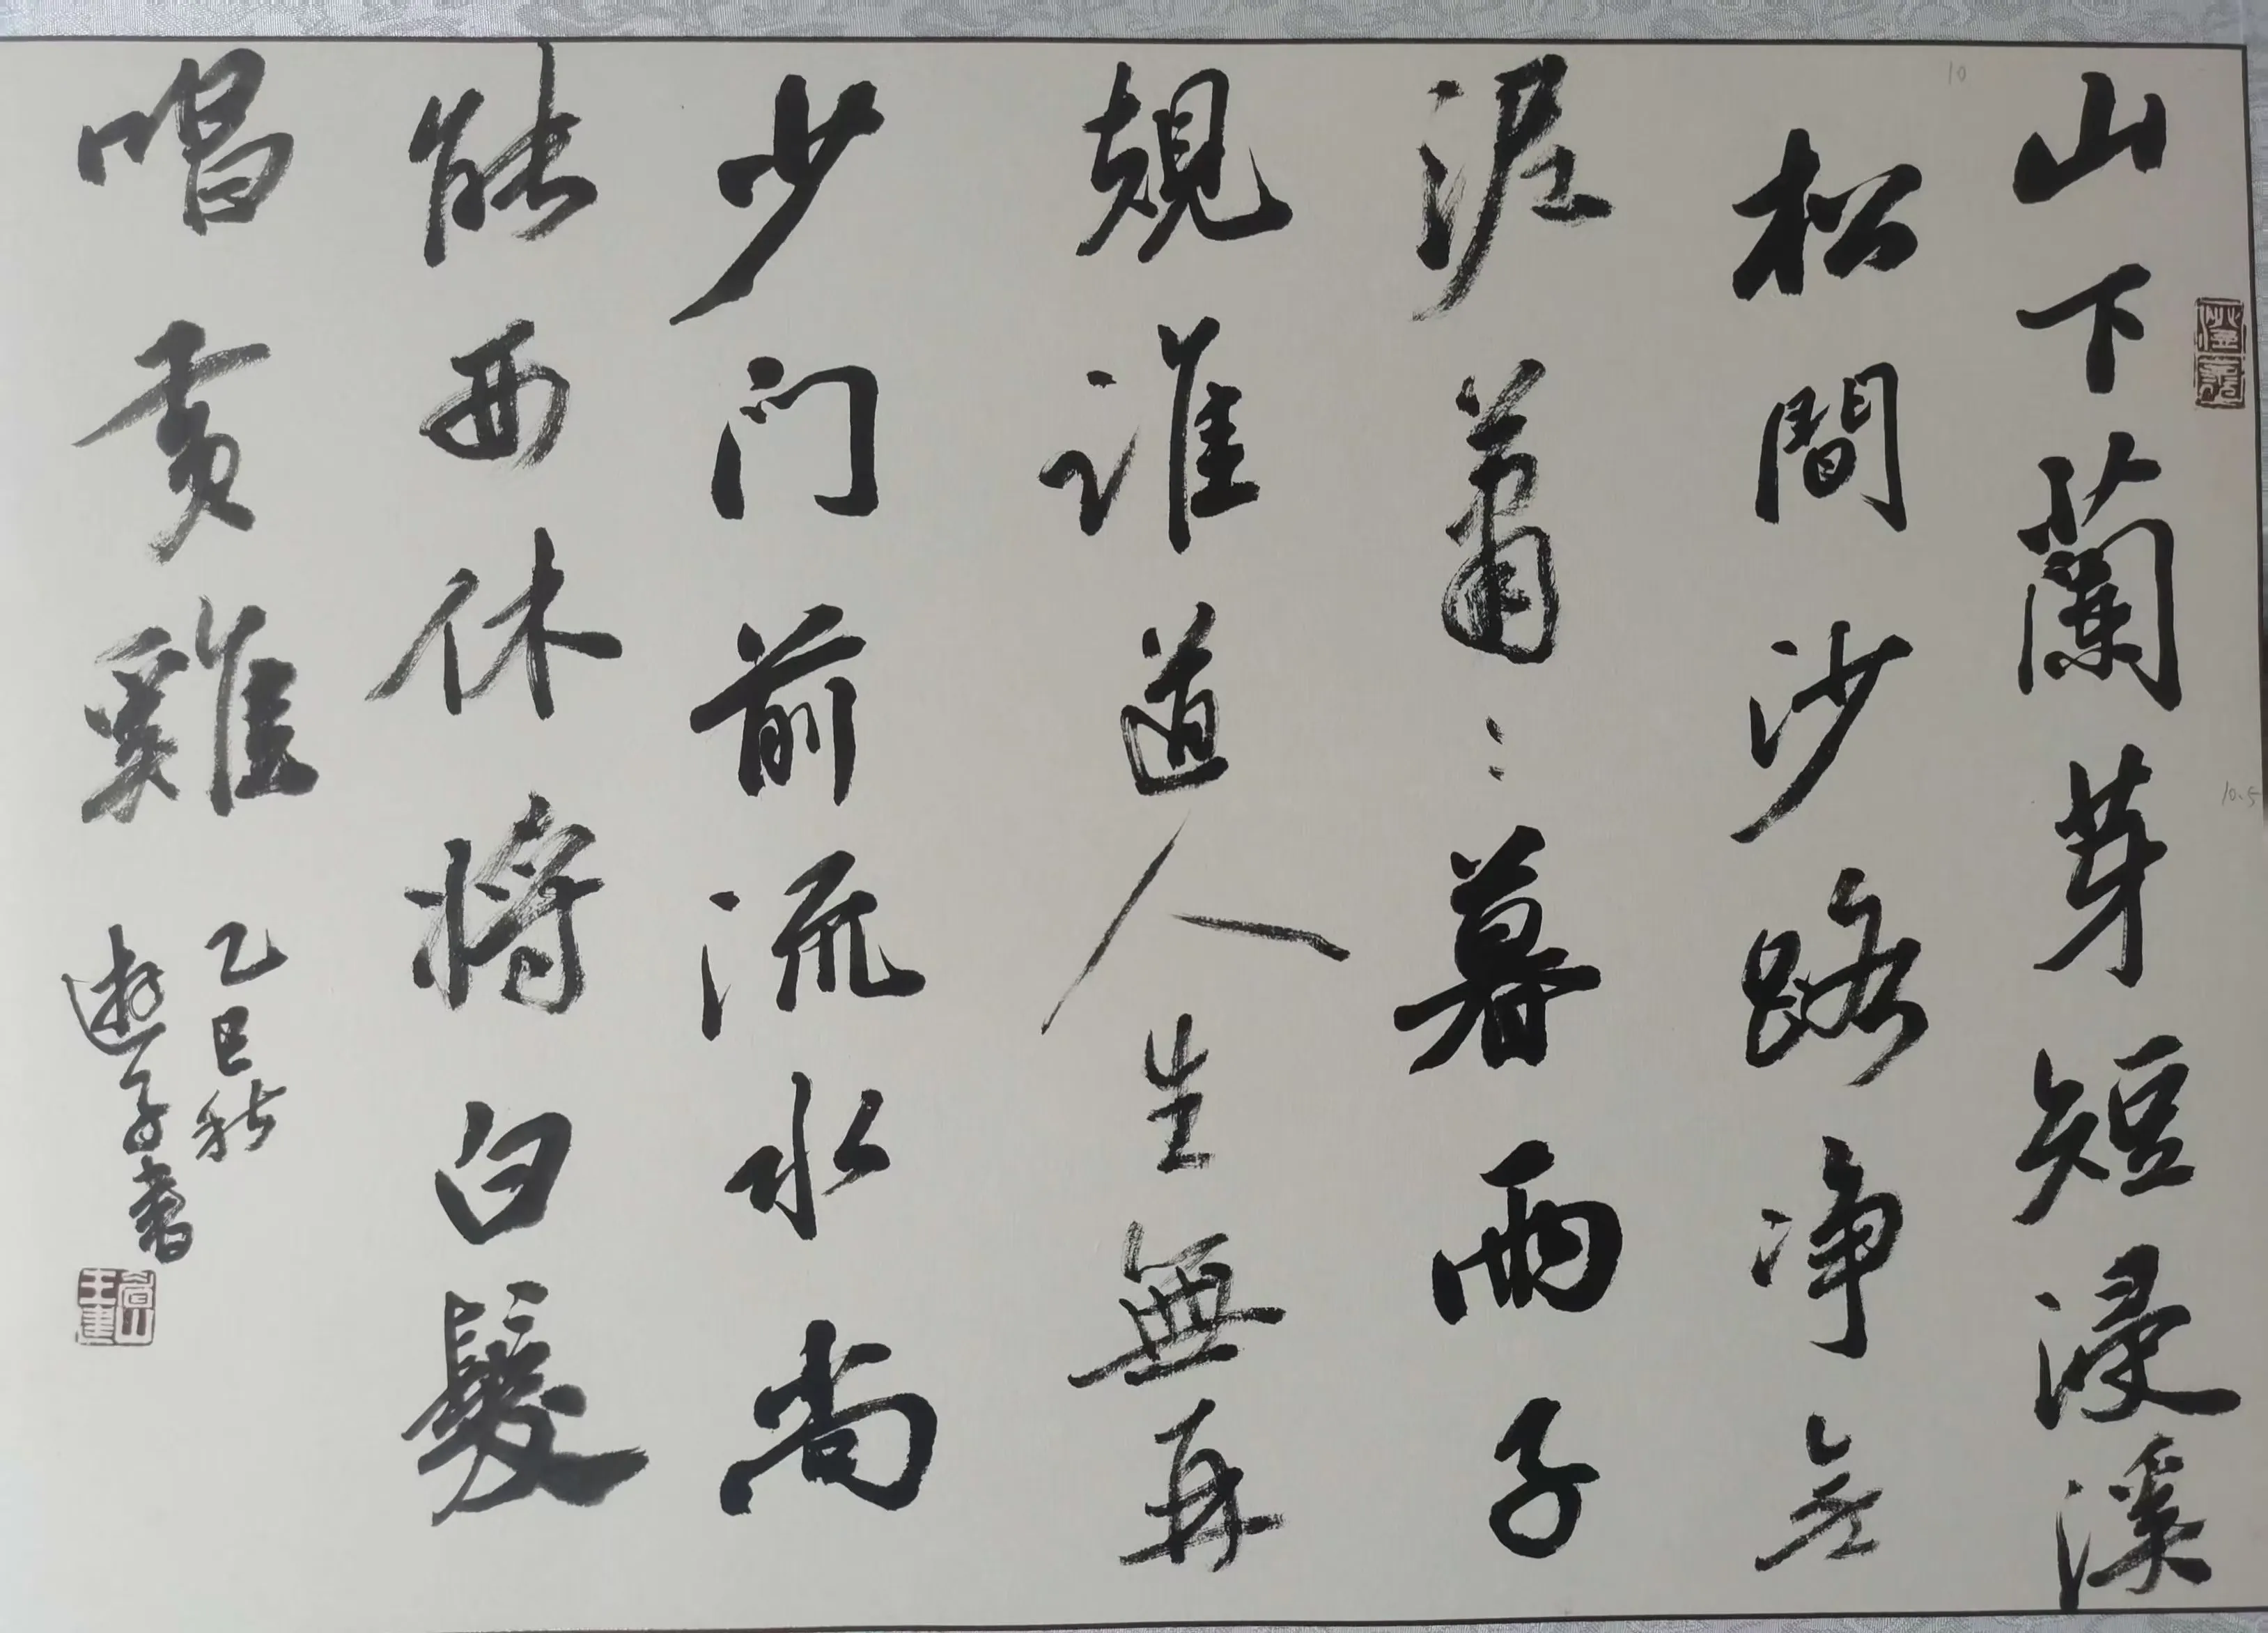 山下蘭芽短浸溪
松間沙路净無
泥蕭〻暮雨子
規谁道人生無再
少门前流水尚
能西休将白髮
唱黄雞
乙巳秋
遊子書
10
10.5